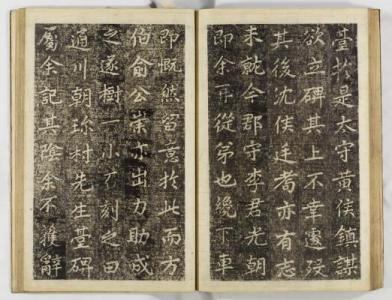 臺於是太守黃侯鎮謀
欲立碑其上不幸遽歿
其後沈侯廷耉亦有志
未就今郡守李君光朝
即余再從弟也纔下車
即慨然留意於此而方
伯俞公崇亦出力助成
之遂樹一小石刻之曰
川朝珎村先生臺碑
屬余記其陰余不獲辭